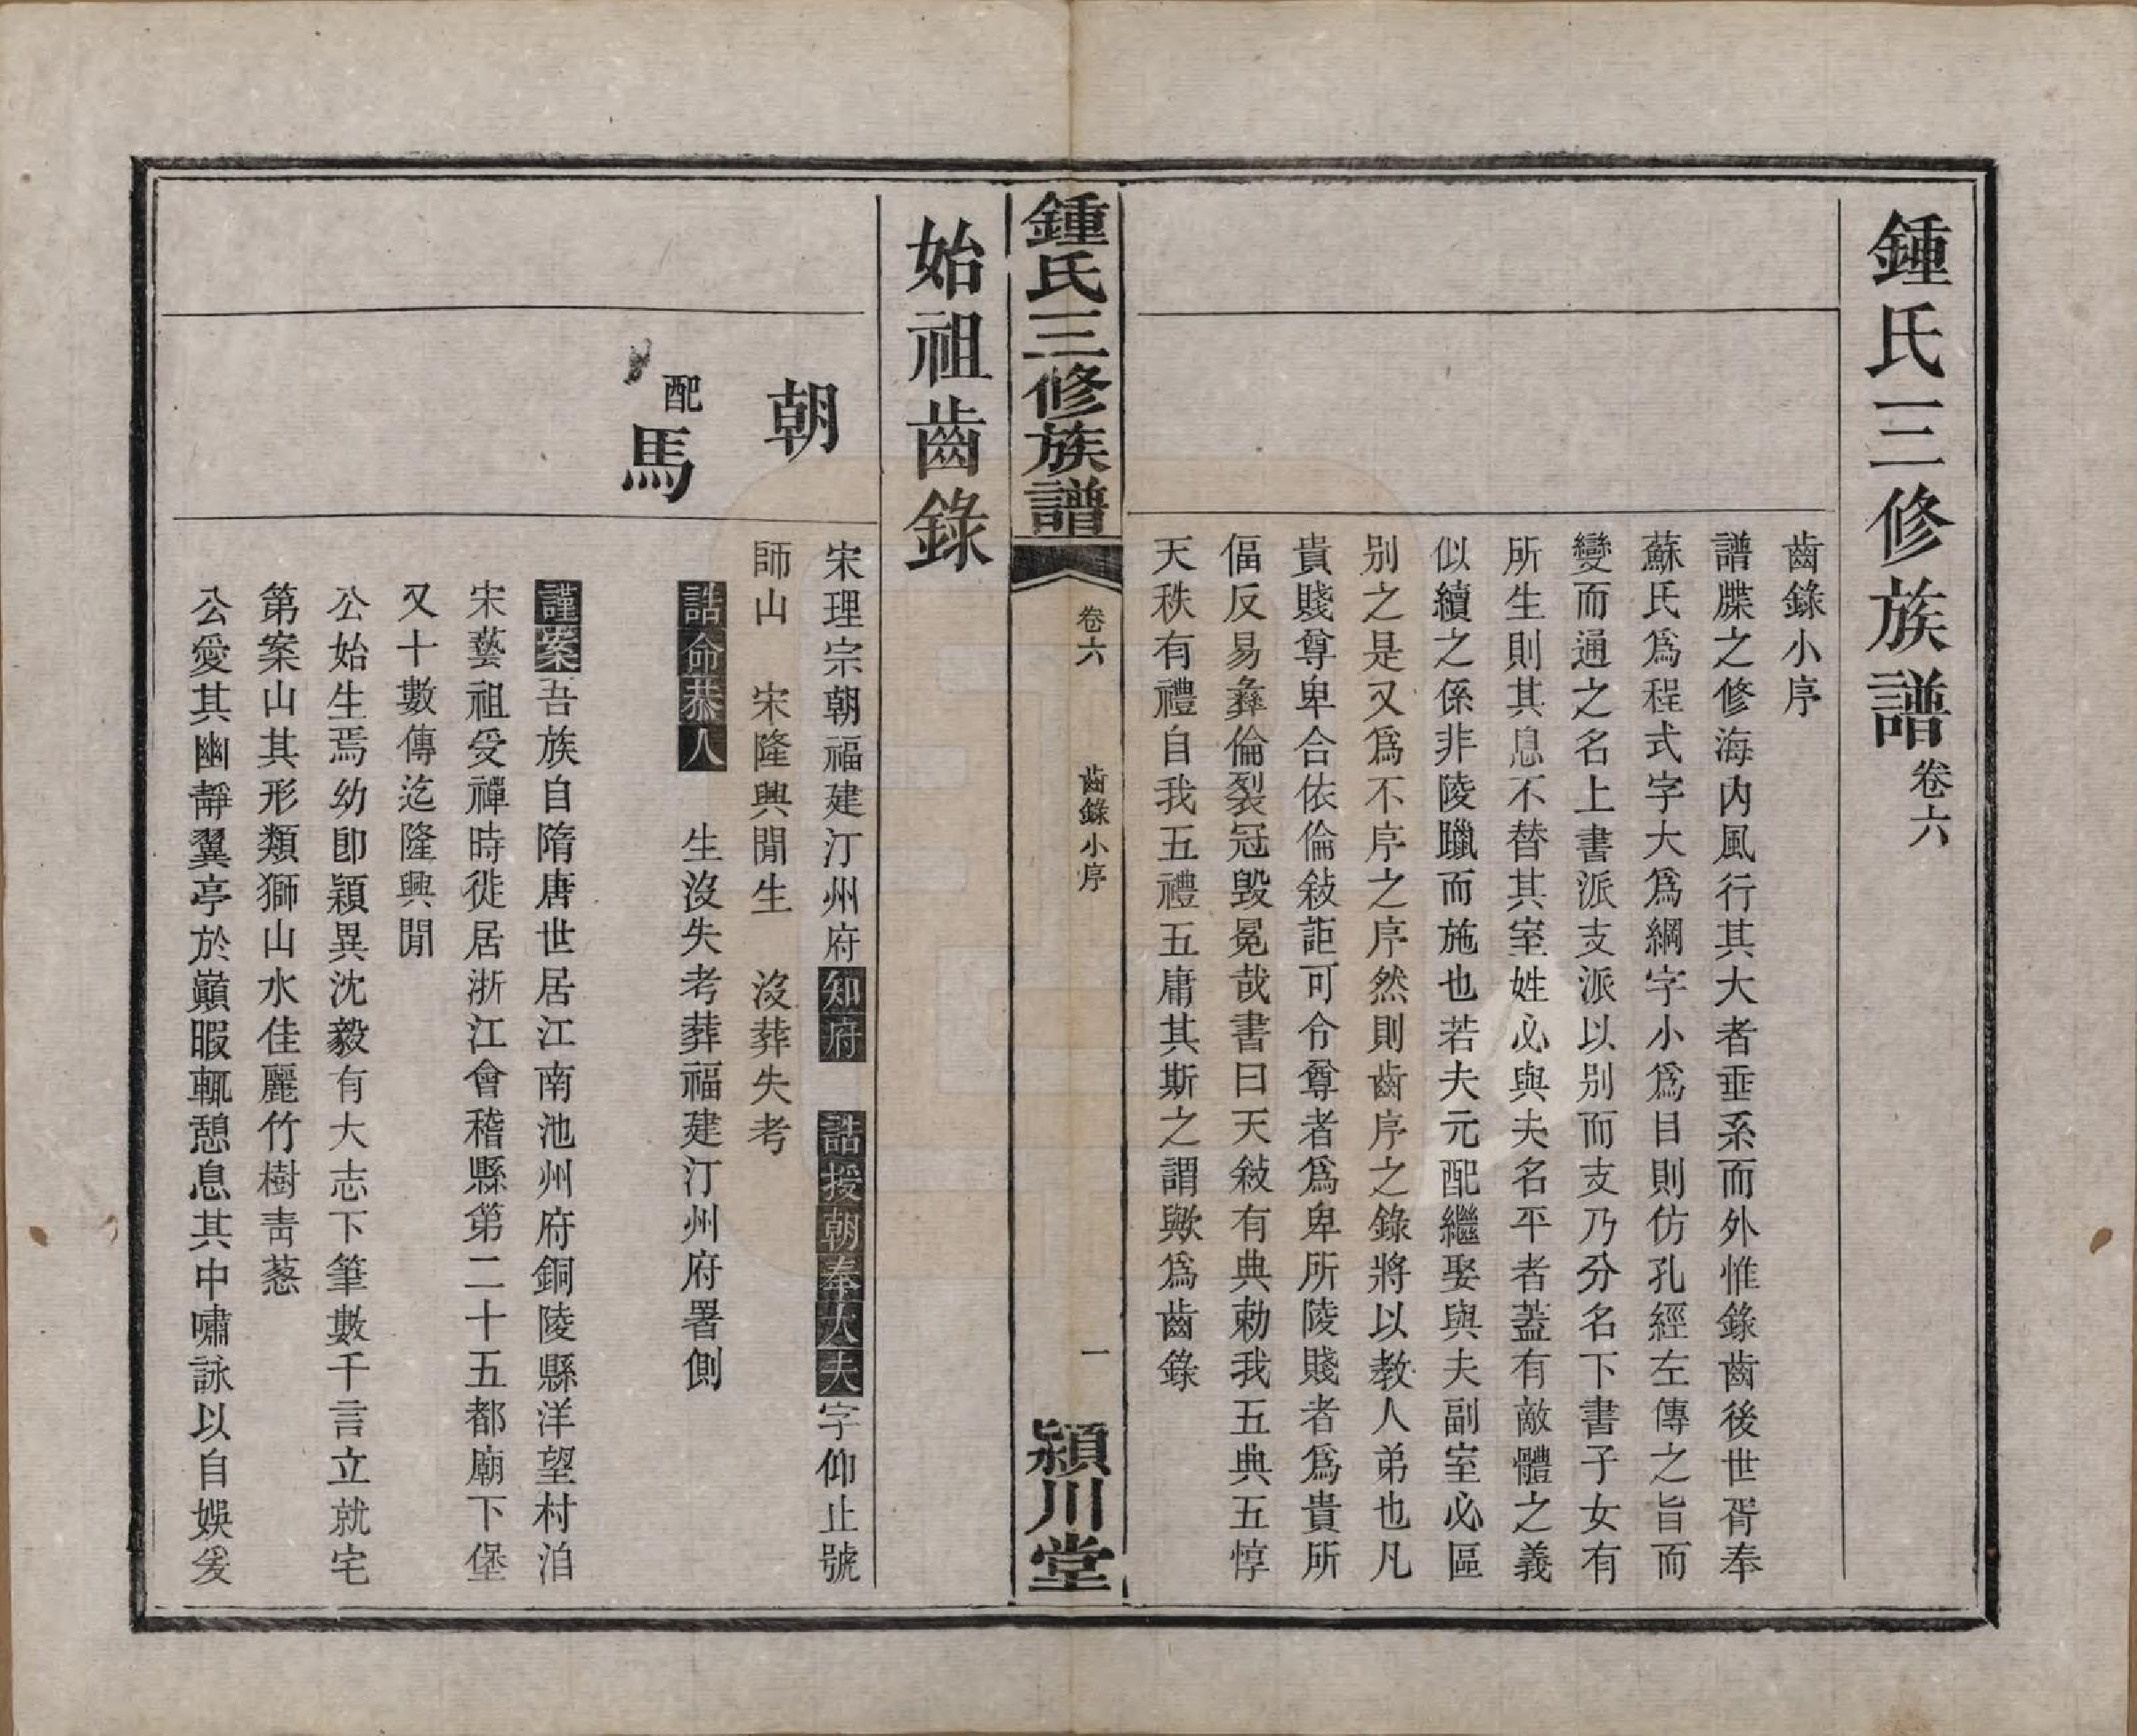 鍾氏三修族譜卷六
齒錄小序
譜牒之修海內風行其大者垂系而外惟錄齒後世胥奉
蘇氏爲程式字大爲綱字小爲目則仿孔經左傳之旨而
變而通之名上書派支派以別而支乃分名下書子女有
所生則其息不替其室姓必與夫名平者蓋有敵體之義
似續之係非陵躐而施也若夫元配繼娶與夫副室必區
別之是又爲不序之序然則齒序之錄將以教人弟也凡
貴賤尊卑合依倫敍詎可令尊者爲卑所陵賤者爲貴所
偪反易彝倫裂冠毀冕哉書曰天敍有典勅我五典五惇
天秩有禮自我五禮五庸其斯之謂歟爲齒錄
鍾氏三修族譜 卷六 齒錄小序 一 潁川堂
始祖齒錄
朝
宋理宗朝福建汀州府知府 誥授朝奉大夫字仰止號
師山 宋隆興閒生 沒葬失考
配馬
誥命恭人 生沒失考葬福建汀州府署側
謹案吾族自隋唐世居江南池州府銅陵縣洋望村洎
宋藝祖受禪時徙居浙江會稽縣第二十五都廟下堡
又十數傳迄隆興閒
公始生焉幼卽穎異沈毅有大志下筆數千言立就宅
第案山其形類獅山水佳麗竹樹靑蔥
公愛其幽靜翼亭於巔暇輒憩息其中嘯詠以自娛爰